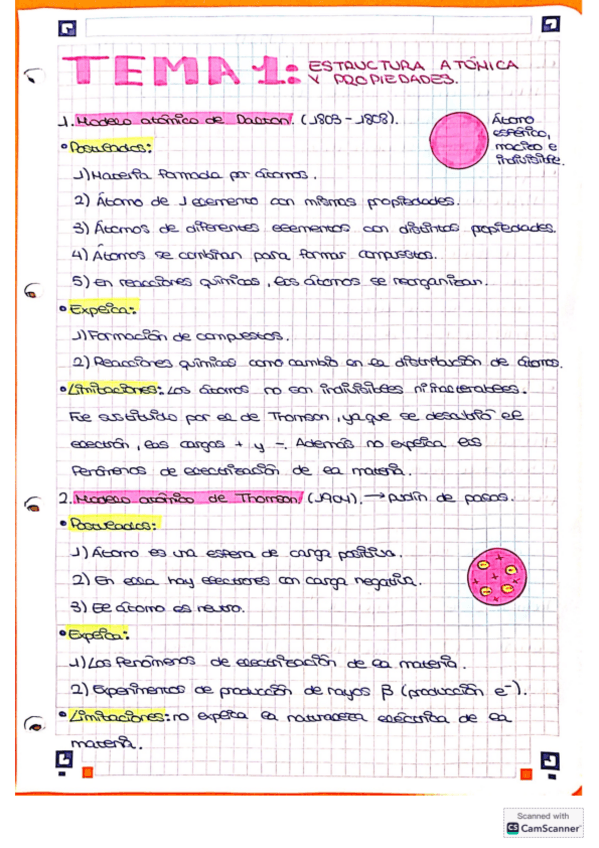 TEMA 1: ESTRUCTURA ATÓMICA
Y PROPIEDADES.
1. Modelo atómico de Dalton. (1803-1808).
Átomo
esférico,
macizo e
indivisible.
• Postulados:
1) Materia formada por átomos.
2) Átomo de 1 elemento con mismas propiedades.
3) Átomos de diferentes elementos con distintas propiedades.
4) Átomos se combinan para formar compuestos.
5) En reacciones químicas, los átomos se reorganizan.
• Explica:
1) Formación de compuestos.
2) Reacciones químicas como cambio en la distribución de átomos.
• Limitaciones: Los átomos no son indivisibles ni inalterables.
Fue sustituido por el de Thomson, ya que se descubrió el
electrón, las cargas + y -. Además no explica los
fenómenos de electrización de la materia.
2. Modelo atómico de Thomson (1904). → pudín de pasas.
• Postulados:
1) Átomo es una esfera de carga positiva.
2) En essa hay electrones con carga negativa.
3) El átomo es neutro.
• Explica:
1) Los fenómenos de electrización de la materia.
2) Experimentos de producción de rayos β (producción e⁻).
• Limitaciones: no explica la naturaleza eléctrica de la
materia.
Scanned with
CS CamScanner